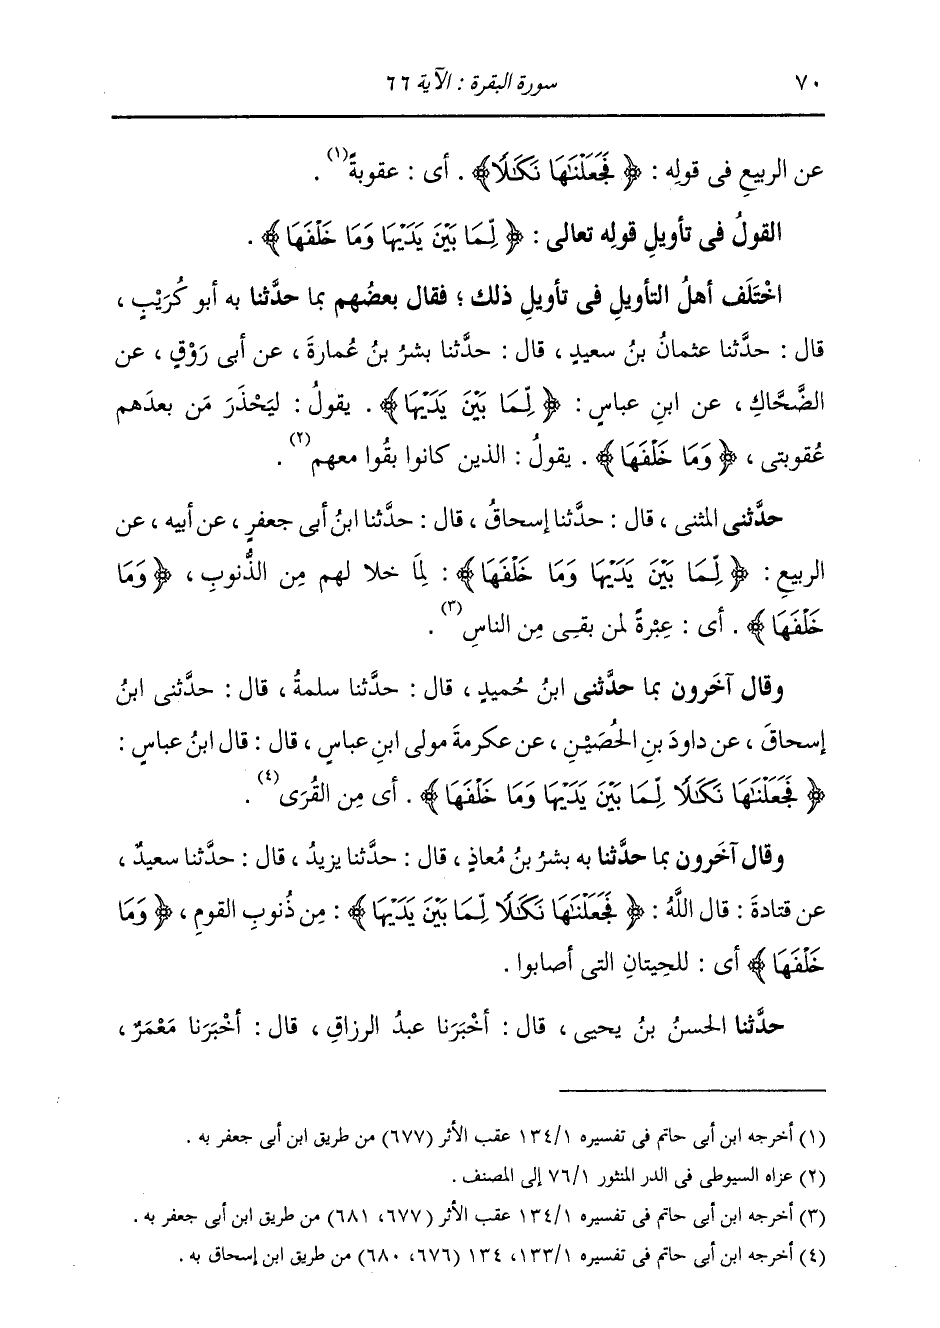 ٧٠ سورة البقرة : الآية ٦٦
عن الربيعِ فى قولِه : ﴿ فَجَعَلْنَٰهَا نَكَٰلًا﴾ . أى : عقوبةً(١) .
القولُ فى تأويلِ قوله تعالى : ﴿ لِّمَا بَيْنَ يَدَيْهَا وَمَا خَلْفَهَا ﴾ .
اخْتَلَف أهلُ التأويلِ فى تأويلِ ذلك ؛ فقال بعضُهم بما حدَّثنا به أبو كُرَيْبٍ ،
قال : حدَّثنا عثمانُ بنُ سعيدٍ ، قال : حدَّثنا بشرُ بنُ عُمارةَ ، عن أبى رَوْقٍ ، عن
الضَّحَّاكِ ، عن ابنِ عباسٍ : ﴿ لِّمَا بَيْنَ يَدَيْهَا ﴾ . يقولُ : ليَحْذَرَ مَن بعدَهم
عُقوبتى ، ﴿ وَمَا خَلْفَهَا ﴾ . يقولُ : الذين كانوا بقُوا معهم(٢) .
حدَّثنى المثنى ، قال : حدَّثنا إسحاقُ ، قال : حدَّثنا ابنُ أبى جعفرٍ ، عن أبيه ، عن
الربيعِ : ﴿ لِّمَا بَيْنَ يَدَيْهَا وَمَا خَلْفَهَا ﴾ : لِمَا خلا لهم مِن الذُّنوبِ ، ﴿ وَمَا
خَلْفَهَا ﴾ . أى : عِبْرةً لمن بقى مِن الناسِ(٣) .
وقال آخَرون بما حدَّثنى ابنُ حُميدٍ ، قال : حدَّثنا سلمةُ ، قال : حدَّثنى ابنُ
إسحاقَ ، عن داودَ بنِ الحُصَيْنِ ، عن عكرمةَ مولى ابنِ عباسٍ ، قال : قال ابنُ عباسٍ :
﴿ فَجَعَلْنَٰهَا نَكَٰلًا لِّمَا بَيْنَ يَدَيْهَا وَمَا خَلْفَهَا ﴾ . أى مِن القُرَى(٤) .
وقال آخَرون بما حدَّثنا به بشرُ بنُ مُعاذٍ ، قال : حدَّثنا يزيدُ ، قال : حدَّثنا سعيدٌ ،
عن قتادةَ : قال اللَّهُ : ﴿ فَجَعَلْنَٰهَا نَكَٰلًا لِّمَا بَيْنَ يَدَيْهَا ﴾ : مِن ذُنوبِ القومِ ، ﴿ وَمَا
خَلْفَهَا ﴾ أى : للحِيتانِ التى أصابوا .
حدَّثنا الحسنُ بنُ يحيى ، قال : أخْبَرَنا عبدُ الرزاقِ ، قال : أخْبَرَنا مَعْمَرٌ ،
(١) أخرجه ابن أبى حاتم فى تفسيره ١٣٤/١ عقب الأثر (٦٧٧) من طريق ابن أبى جعفر به .
(٢) عزاه السيوطى فى الدر المنثور ٧٦/١ إلى المصنف .
(٣) أخرجه ابن أبى حاتم فى تفسيره ١٣٤/١ عقب الأثر (٦٧٧، ٦٨١) من طريق ابن أبى جعفر به .
(٤) أخرجه ابن أبى حاتم فى تفسيره ١٣٣/١، ١٣٤ (٦٧٦، ٦٨٠) من طريق ابن إسحاق به .